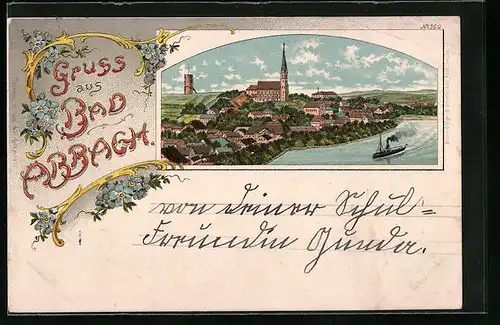 Gruss
aus
BAD
ABBACH.
von deiner Schul=
Freundin Gunda.